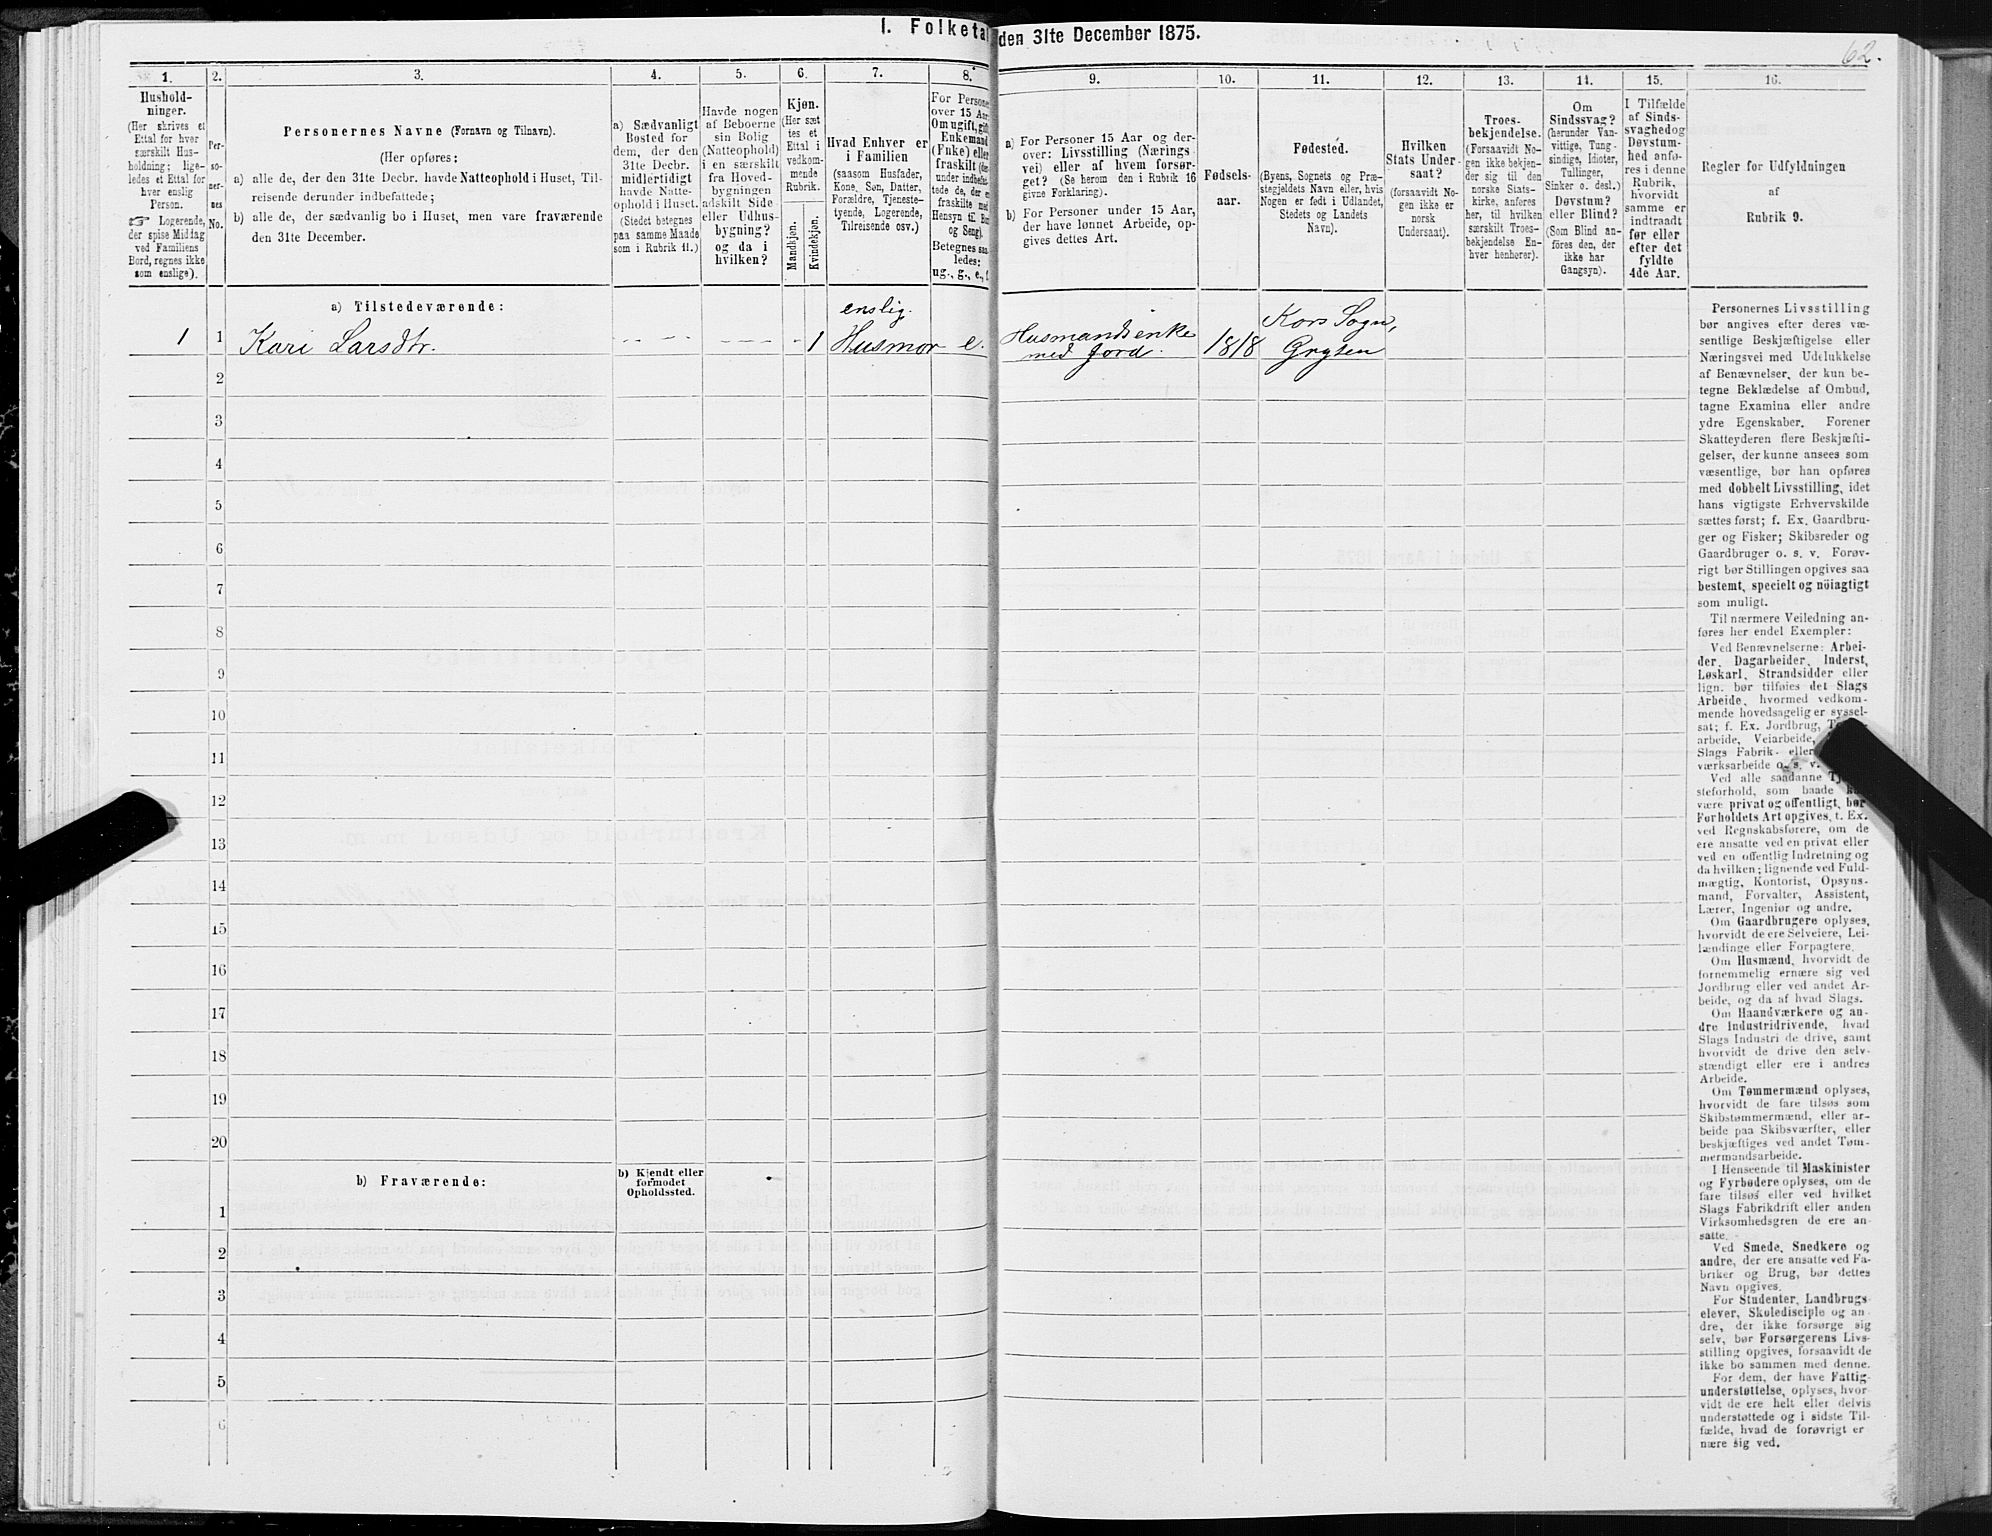 1. Folketal den 31te December 1875.
62.
1.
2.
3.
4.
5.
6.
7.
8.
Hushold-
ninger.
(Her skrives et
Ettal for hver
særskilt Hus-
holdning; lige-
ledes et Ettal for
hver enslig
Person.
☞ Logerende,
der spise Middag
ved Familiens
Bord, regnes ikke
som enslige).
Per-
so-
ner-
nes
No.
Personernes Navne (Fornavn og Tilnavn).
(Her opføres:
a) alle de, der den 31te Decbr. havde Natteophold i Huset, Til-
reisende derunder indbefattede;
b) alle de, der sædvanlig bo i Huset, men vare fraværende
den 31te December.
a) Sædvanligt
Bosted for
dem, der den
31te Decbr.
midlertidigt
havde Natte-
ophold i Huset.
(Stedet betegnes
paa samme Maade
som i Rubrik 11.)
Havde nogen
af Beboerne
sin Bolig
(Natteophold)
i en særskilt
fra Hoved-
bygningen
adskilt Side
eller Udhus-
bygning?
og da i
hvilken?
Kjøn.
(Her sæt
tes et
Ettal i
vedkom-
mende
Rubrik.
Mandkjøn.
Kvindekjøn.
Hvad Enhver er
i Familien
(saasom Husfader,
Kone, Søn, Datter,
Forældre, Tjeneste-
tyende, Logerende,
Tilreisende osv.)
For Persone
over 15 Aar
Om ugift, gift
Enkemand
(Enke) eller
fraskilt (der
under indbefat
tede de, der er
fraskilte med
Hensyn til Bor
og Seng).
Betegnes saa
ledes:
ug., g., e., f.
9.
10.
11.
12.
13.
14.
15.
16.
a) For Personer 15 Aar og der-
over: Livsstilling (Nærings-
vei) eller af hvem forsør-
get? (Se herom den i Rubrik 16
givne Forklaring).
b) For Personer under 15 Aar,
der have lønnet Arbeide, op-
gives dettes Art.
Fødsels-
aar.
Fødested.
(Byens, Sognets og Præ-
stegjeldets Navn eller, hvis
Nogen er født i Udlandet,
Stedets og Landets
Navn).
Hvilken
Stats Under-
saat?
(forsaavidt No-
gen ikke er
norsk
Undersaat).
Troes-
bekjendelse.
(Forsaavidt No-
gen ikke bekjen-
der sig til den
norske Stats-
kirke, anføres
her, til hvilken
særskilt Troes-
bekjendelse En-
hver henhører).
Om
Sindssvag?
(herunder Van-
vittige, Tung-
sindige, Idioter,
Tullinger,
Sinker o. desl.)
Døvstum?
eller Blind?
(Som Blind an-
føres den, der
ikke har
Gangsyn).
I Tilfælde
af Sinds-
svaghed og
Døvstum-
hed anfø-
res i denne
Rubrik,
hvorvidt
samme er
indtraadt
før eller
efter det
fyldte
4de Aar.
Regler før Udfyldningen
af
Rubrik 9.
a) Tilstedeværende:
enslig.
1 1 Kari Larsdtr. 1 Husmor e. Husmandsenke med Jord. 1818 Kors Sogn, Grytten
2
3
4
5
6
7
8
9
10
11
12
13
14
15
16
17
18
19
20
b) Fraværende:
b) Kjendt eller
formodet
Opholdssted.
1
2
3
4
5
6
Personernes Livsstilling
bør angives efter deres væ-
sentlige Beskjæftigelse eller
Næringsvei med Udelukkelse
af Benævnelser, der kun be-
tegne Beklædelse af Ombud,
tagne Examina eller andre
ydre Egenskaber. Forener
Skatteyderen flere Beskjæfti-
gelser, der kunne ansees som
væsentlige, bør han opføres
med dobbelt Livsstilling, idet
hans vigtigste Erhvervskilde
sættes først; f. Ex. Gaardbru-
ger og Fisker; Skibsreder og
Gaardbruger o. s. v. Forøv-
rigt bør Stillingen opgives saa
bestemt, specielt og nöiagtigt
som muligt.
Til nærmere Veiledning an-
føres her endel Exempler:
Ved Benævnelserne: Arbei-
der, Dagarbeider, Inderst,
Løskarl, Strandsidder eller
lign. bør tilføies det Slags
Arbeide, hvormed vedkom-
mende hovedsagelig er syssel-
sat; f. Ex. Jordbrug,
arbeide, Veiarbeide,
Slags Fabrik- eller
værksarbeide o. s. v.
Ved alle saadanne
steforhold, som baade
være privat og offentligt, bør
Forholdets Art opgives, t. Ex.
ved Regnskabsførere, om de
ere ansatte ved en privat eller
ved en offentlig Indretning og
da hvilken; lignende ved Fuld-
mægtig, Kontorist, Opsyns-
mand, Forvalter, Assistent,
Lærer, Ingeniør og andre.
Om Gaardbrugere oplyses,
hvorvidt de ere Selveiere, Lei-
lændinge eller Forpagtere.
Om Husmænd, hvorvidt de
fornemmelig ernære sig ved
Jordbrug eller ved andet Ar-
beide, og da af hvad Slags.
Om Haandværkere og an-
dre Industridrivende, hvad
Slags Industri de drive, samt
hvorvidt de drive den selv-
stændigt eller ere i andres
Arbeide.
Om Tømmermænd oplyses,
hvorvidt de fare tilsøs som
Skibstømmermænd, eller ar-
beide paa Skibsværfter, eller
beskjæftiges ved andet Tøm-
mermandsarbeide.
I Henseende til Maskinister
og Fyrbødere oplyses, om de
fare tilsøs eller ved hvilket
Slags Fabrikdrift eller anden
Virksomhedsgren de ere an-
satte.
Ved Smede, Snedkere og
andre, der ere ansatte ved Fa-
briker og Brug, bør dettes
Navn opgives.
For Studenter, Landbrugs-
elever, Skoledisciple og an
dre, der ikke forsørge sig
selv, bør Forsørgerens Livs-
stilling opgives, forsaavidt de
ikke bo sammen med denne.
For dem, der have Fattig-
understøttelse, oplyses, hvor-
vidt de ere helt eller delvis
understøttede og i sidste Til-
fælde, hvad de forøvrigt er
nære sig ved.